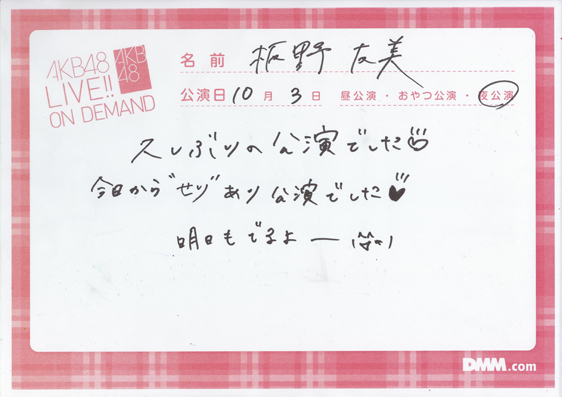 AKB48
LIVE!!
ON DEMAND
AKB
48
名前 板野友美
公演日 10月3日 昼公演・おやつ公演・夜公演
久しぶりの公演でした♡
今日から"せり"あり公演でした♥
明日もでるよー(^^)
DMM.com